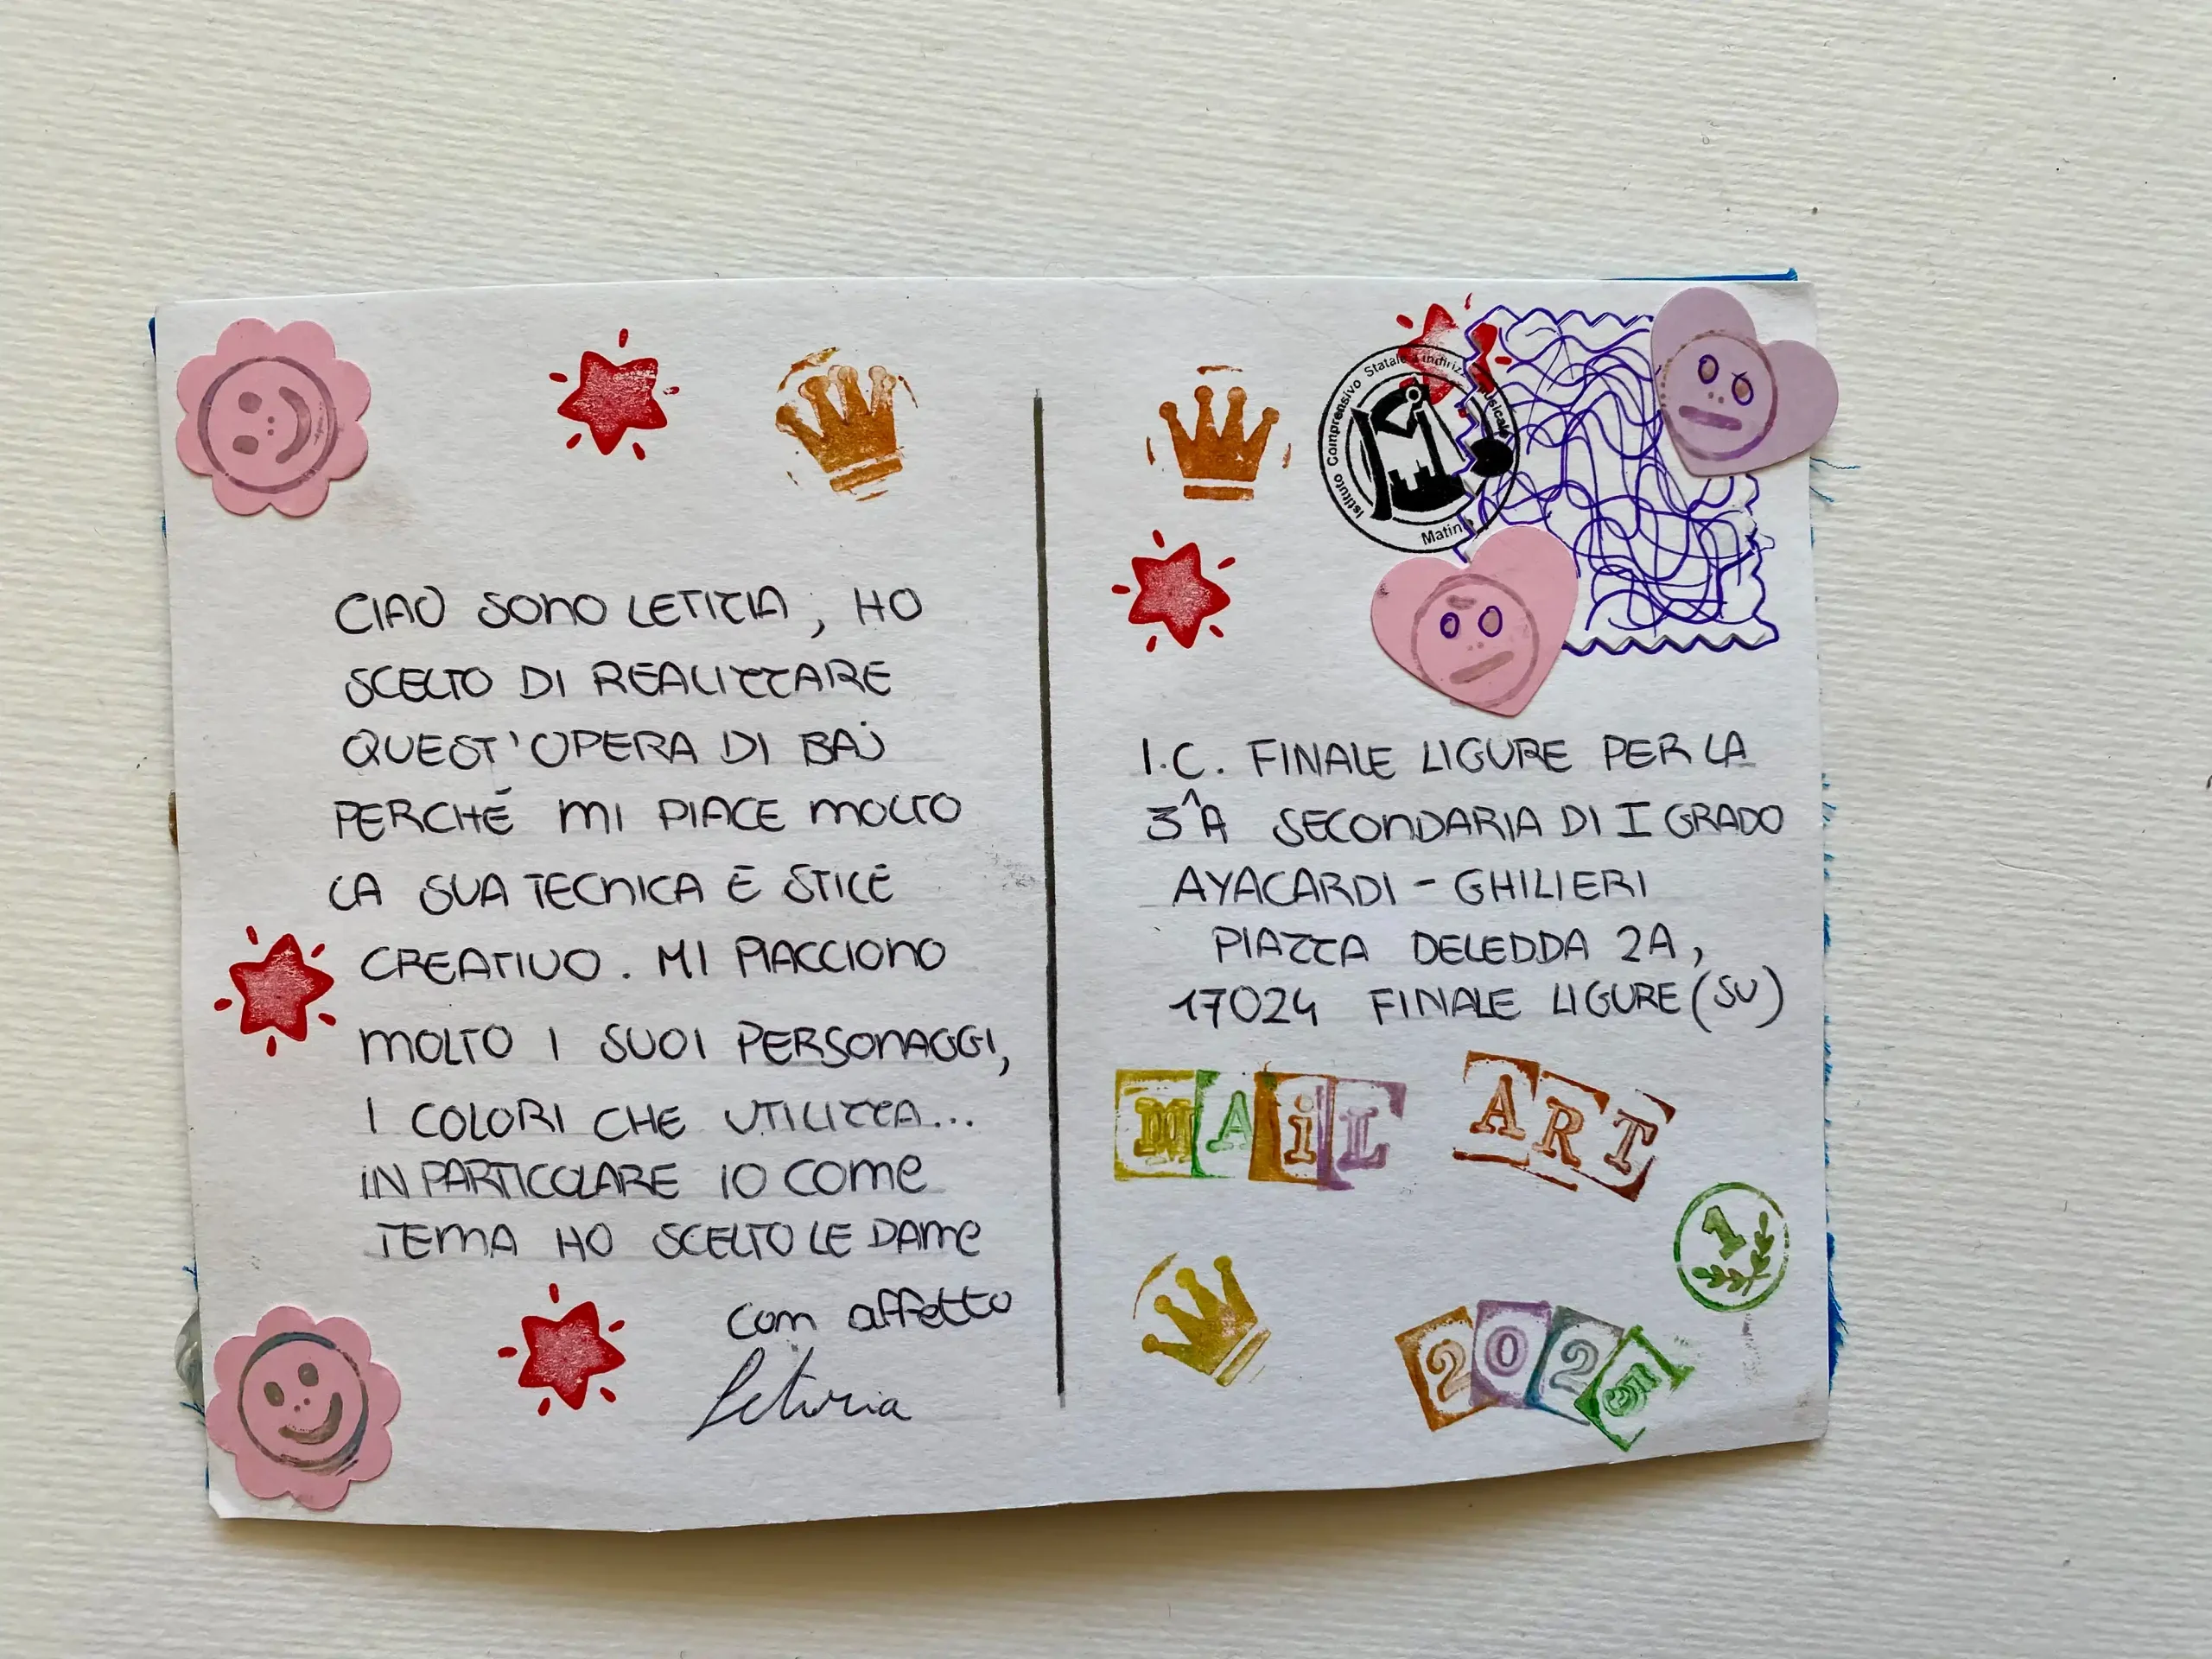 CIAO SONO LETIZIA, HO
SCELTO DI REALIZZARE
QUEST'OPERA DI BAJ
PERCHÉ MI PIACE MOLTO
LA SUA TECNICA E STILE
CREATIVO. MI PIACCIONO
MOLTO I SUOI PERSONAGGI,
I COLORI CHE UTILIZZA...
IN PARTICOLARE IO COME
TEMA HO SCELTO LE DAME
con affetto
Letizia
Istituto Comprensivo Statale indirizz usicale
Matin
I.C. FINALE LIGURE PER LA
3^A SECONDARIA DI I GRADO
AYACARDI - GHILIERI
PIAZZA DELEDDA 2A,
17024 FINALE LIGURE (SV)
MAiL ART
1
2025